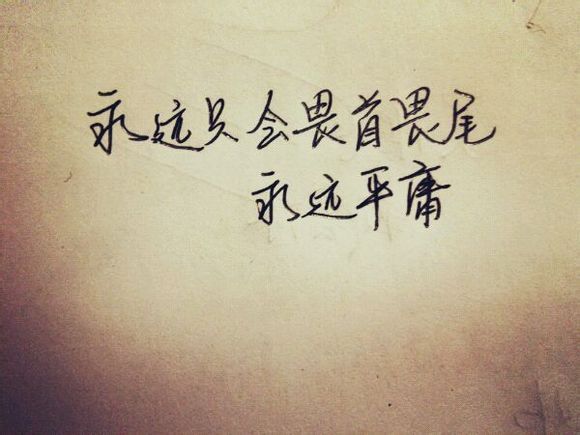 永远只会畏首畏尾
永远平庸